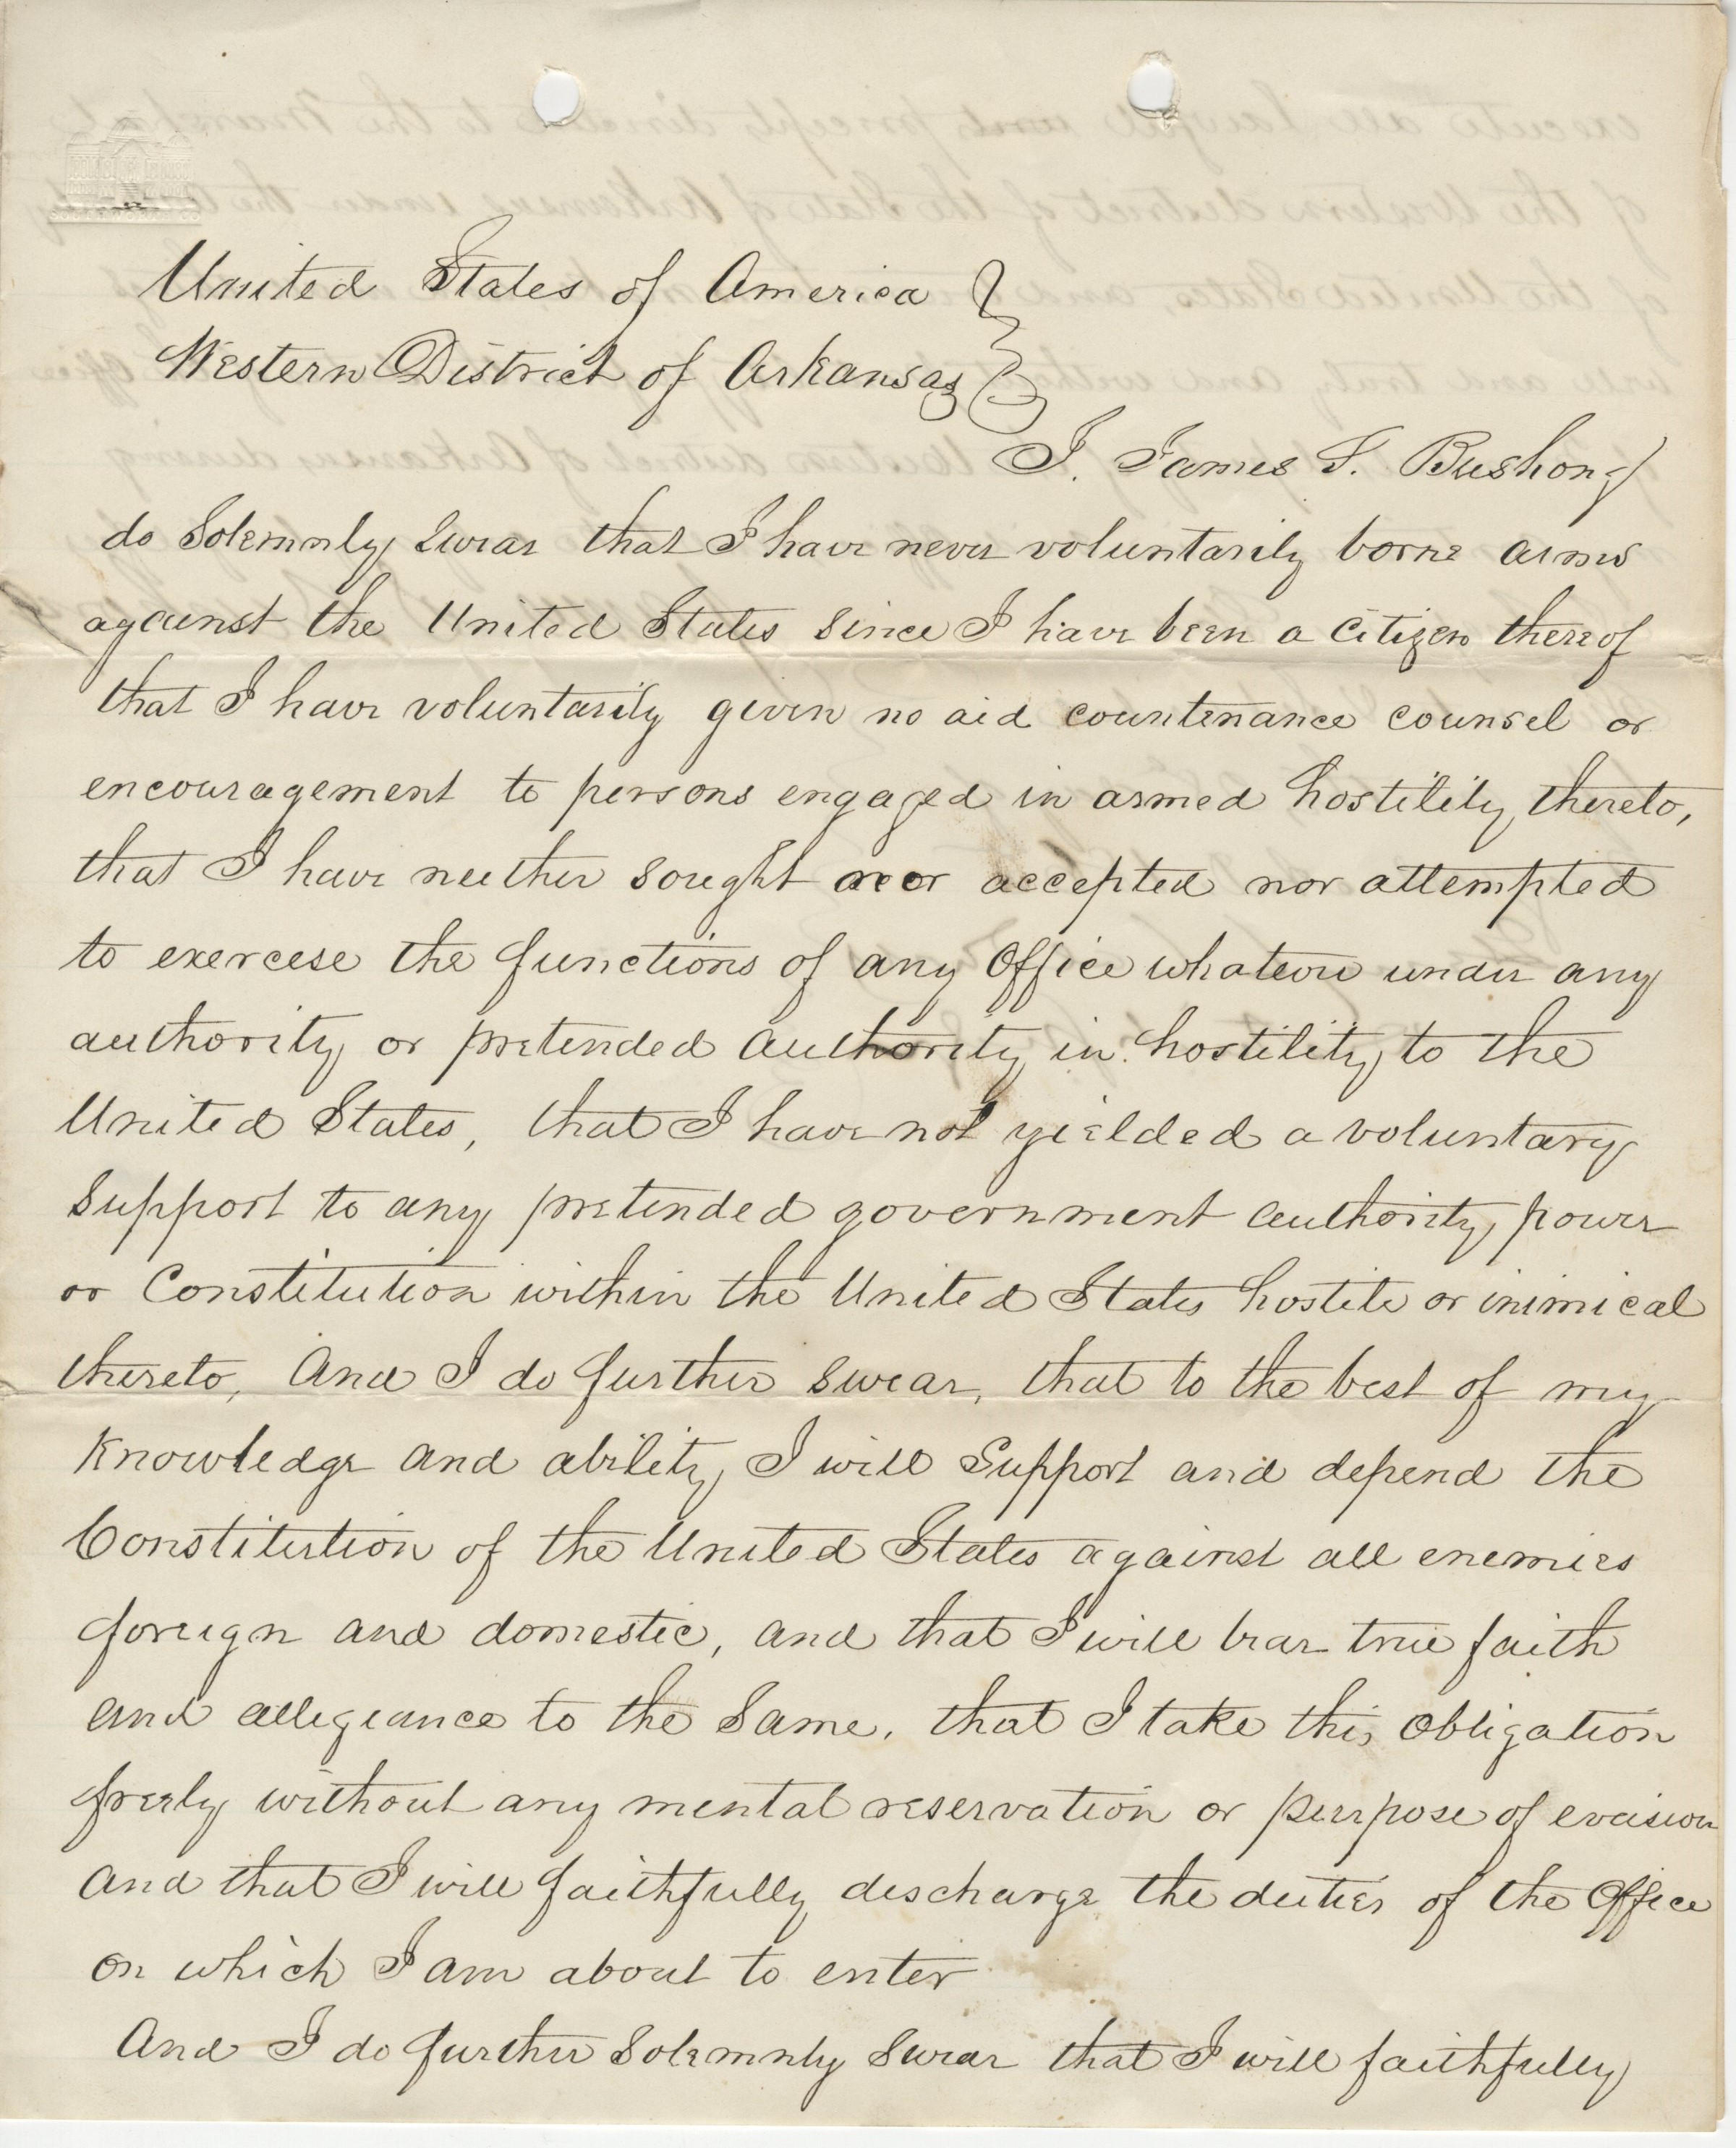 United States of America
Western District of Arkansas
I. James F. Bushong
do Solemnly Swear that I have never voluntarily borne arms
against the United States since I have been a Citizen thereof
that I have voluntarily given no aid countenance counsel or
encouragement to persons engaged in armed hostility thereto,
that I have neither sought nor accepted nor attempted
to exercese the functions of any Office whatever under any
authority or pretended authority in hostility to the
United States, that I have not yielded a voluntary
Support to any pretended government authority, power
or Constitution within the United States hostile or inimical
thereto, And I do further swear, that to the best of my
Knowledge and ability, I will Support and depend the
Constitution of the United States against all enemies
foreign and domestic, and that I will bear true faith
and allegiance to the Same, that I take this Obligation
freely without any mental reservation or purpose of evasion
and that I will faithfully discharge the duties of the Office
on which I am about to enter
And I do further Solemnly Swear that I will faithfully